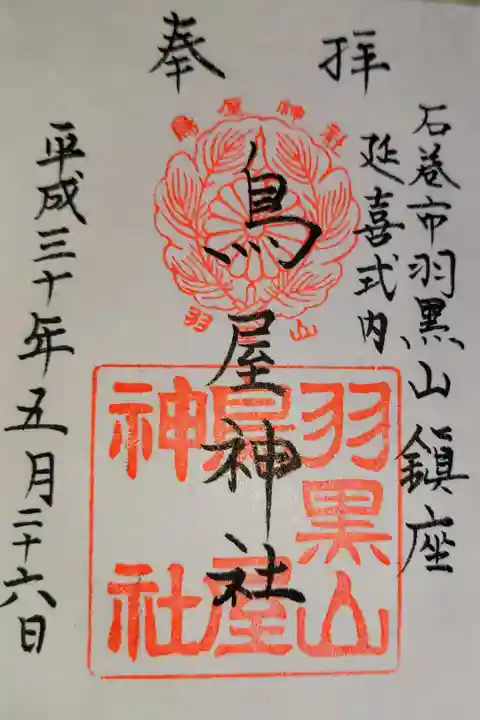 奉拝
石巻市羽黒山鎮座
延喜式内
鳥屋神社
平成三十年五月二十六日
鳥屋神社
羽山
羽黒山
鳥屋
神社